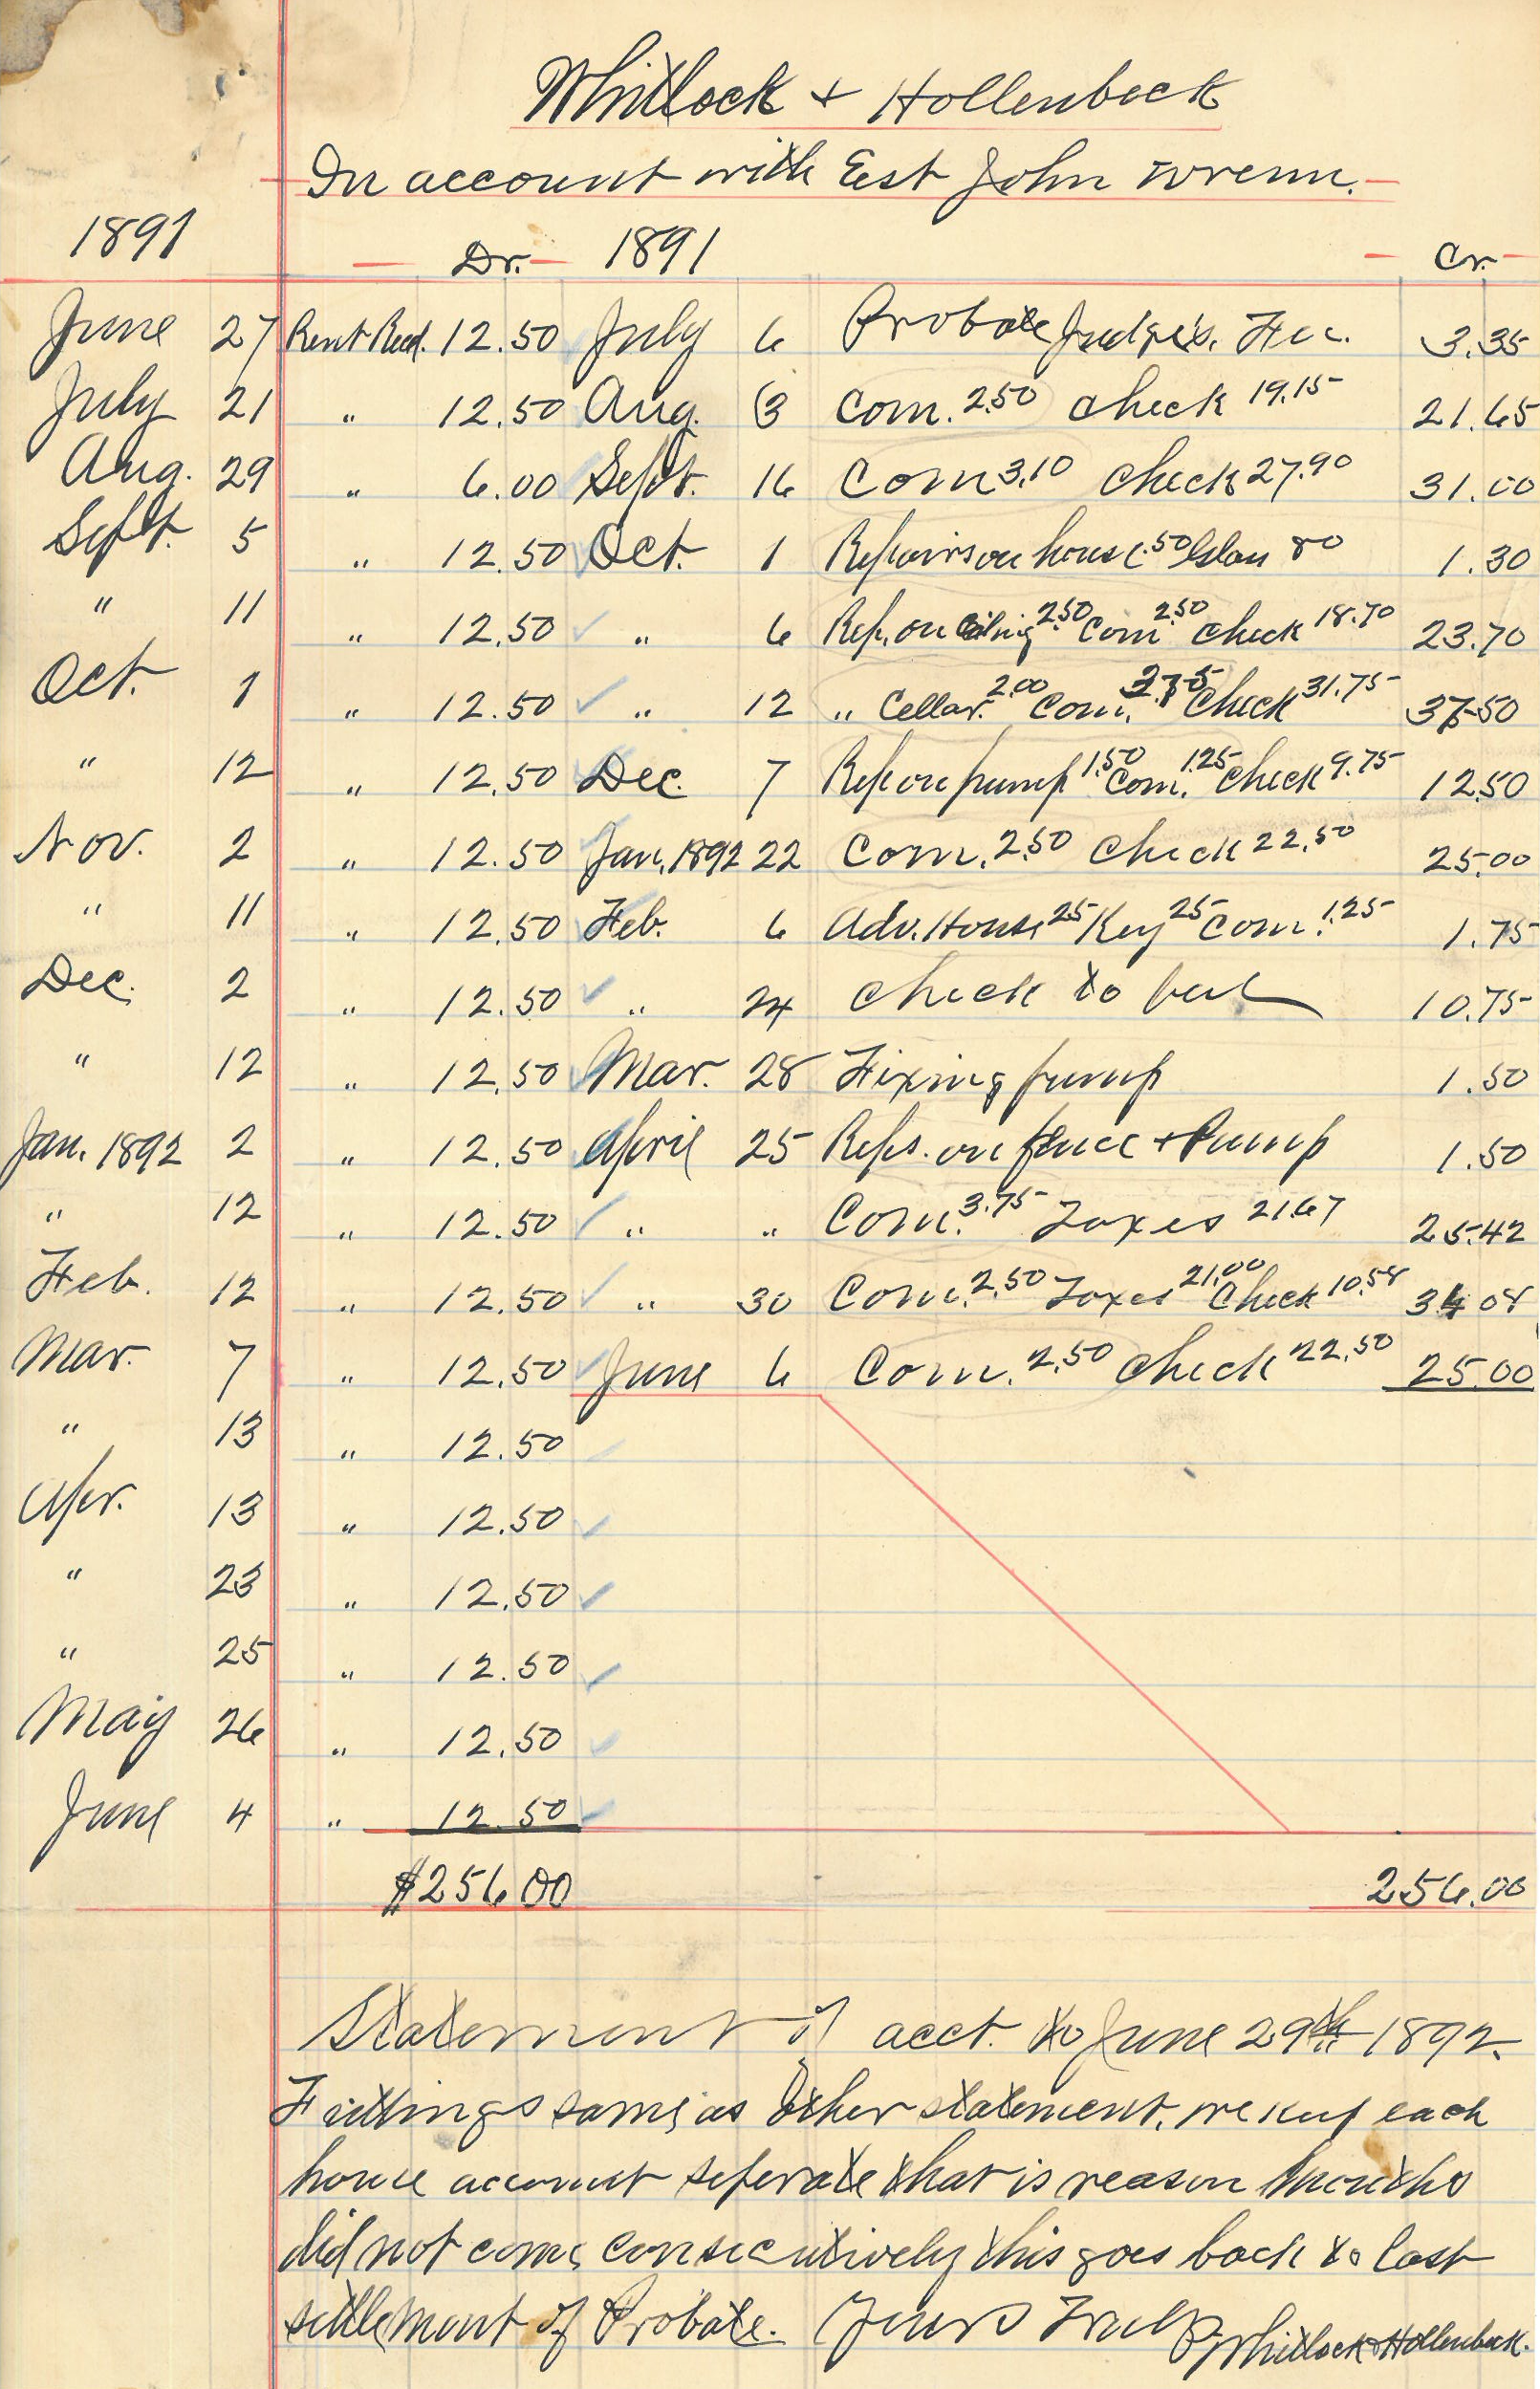 Whitlock + Hollenbeck
In account with Est John Wrenn.
1891 Dr. 1891 Cr.
June 27 Rent Recd. 12.50 July 6 Probate Judge's. Fee. 3.35
July 21 " 12.50 Aug. 3 Com. 2.50 Check 19.15 21.65
Aug. 29 " 6.00 Sept. 16 Com 3.10 Check 27.90 31.00
Sept. 5 " 12.50 Oct. 1 Repairs on house .50 80 1.30
" 11 " 12.50 " 6 Rep. on Ceiling 2.50 Com 2.50 Check 18.70 23.70
Oct. 1 " 12.50 " 12 " Cellar. 2.00 Com. 3.75 Check 31.75 37.50
" 12 " 12.50 Dec. 7 Rep on pump 1.50 Com. 1.25 Check 9.75 12.50
Nov. 2 " 12.50 Jan. 1892 22 Com. 2.50 Check 22.50 25.00
" 11 " 12.50 Feb. 6 Adv. House 25 Key 25 Com. 1.25 1.75
Dec. 2 " 12.50 " 24 Check to bal 10.75
" 12 " 12.50 Mar. 28 Fixing pump 1.50
Jan. 1892 2 " 12.50 April 25 Reps. on fence + Pump 1.50
" 12 " 12.50 " " Com. 3.75 Taxes 21.67 25.42
Feb. 12 " 12.50 " 30 Com. 2.50 Taxes 21.00 Check 10.58 34 08
Mar. 7 " 12.50 June 6 Com. 2.50 Check 22.50 25.00
" 13 " 12.50
Apr. 13 " 12.50
" 23 " 12.50
" 25 " 12.50
May 26 " 12.50
June 4 " 12.50
$256.00 256.00
Statement of acct. to June 29th 1892.
same as other statement. we keep each
house account seperate that is reason months
did not come consecutively this goes back to last
settlement of Probate. Yours Truly Whitlock + Hollenbeck.